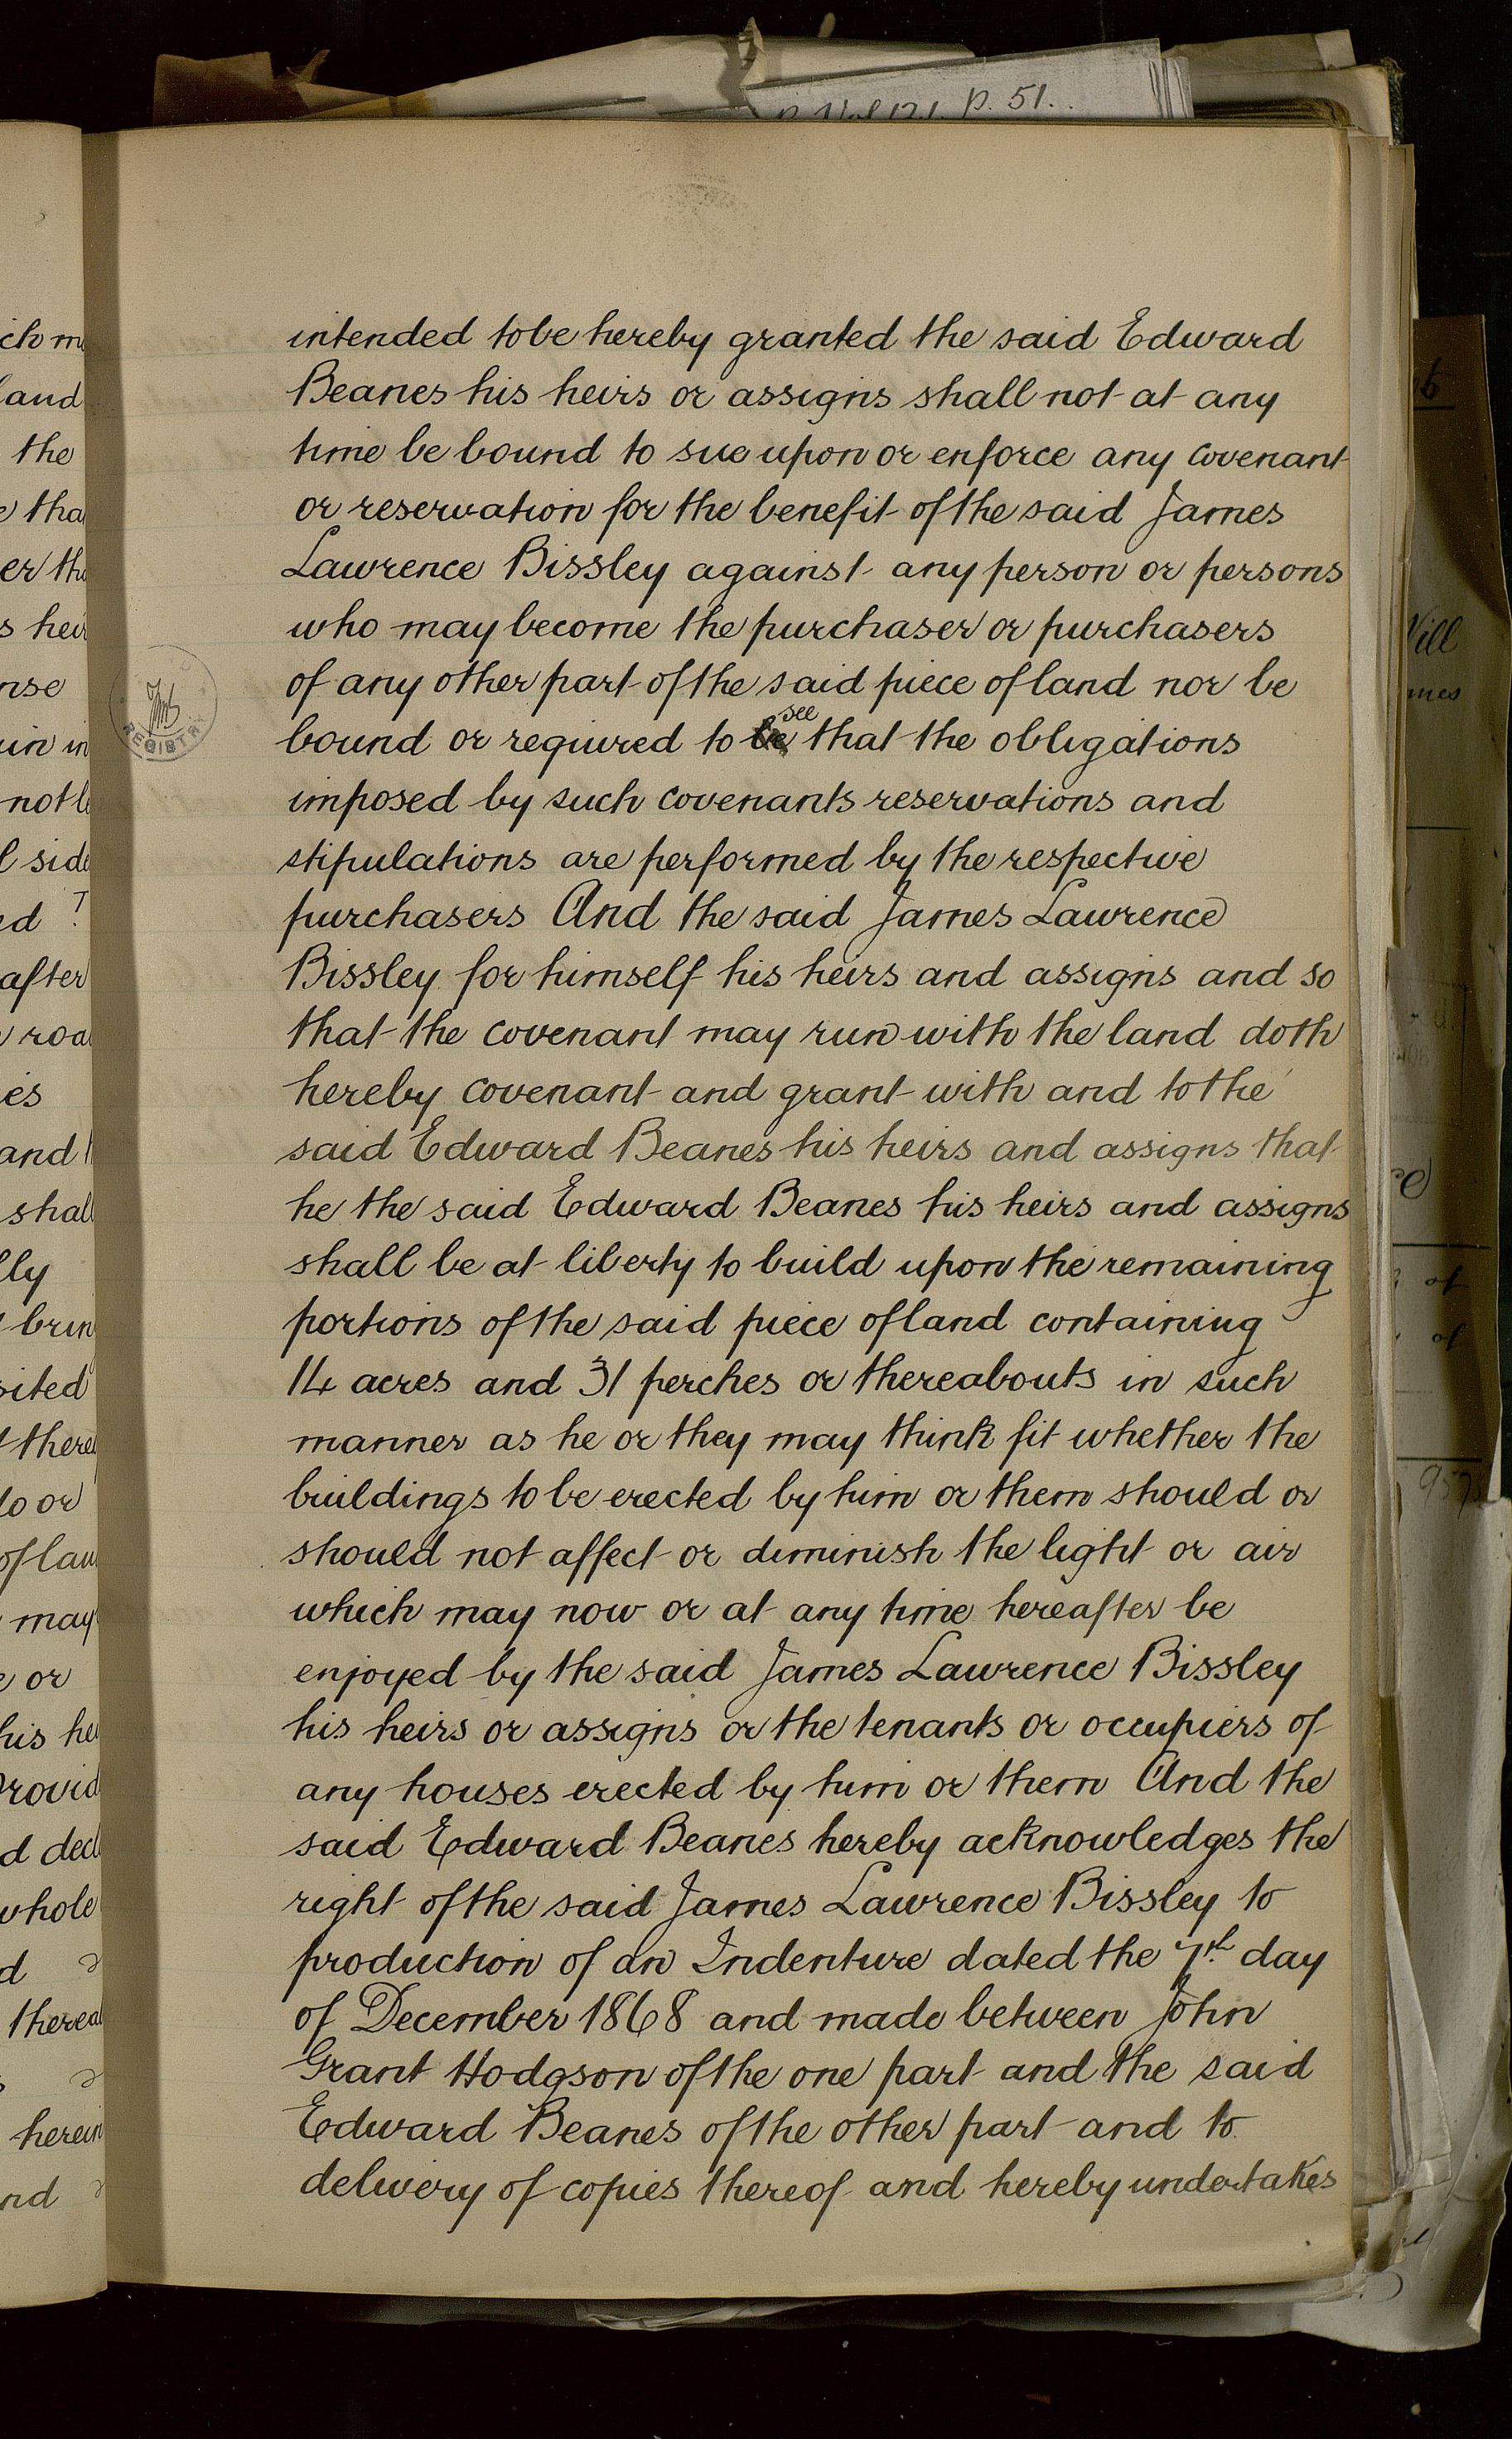 p. 51.
intended to be hereby granted the said Edward
Beanes his heirs or assigns shall not at any
time be bound to sue upon or enforce any covenant
or reservation for the benefit of the said James
Lawrence Bissley against any person or persons
who may become the purchaser or purchasers
of any other part of the said piece of land nor be
bound or required to see that the obligations
imposed by such covenants reservations and
stipulations are performed by the respective
purchasers And the said James Lawrence
Bissley for himself his heirs and assigns and so
that the covenant may run with the land doth
hereby covenant and grant with and to the
said Edward Beanes his heirs and assigns that
he the said Edward Beanes his heirs and assigns
shall be at liberty to build upon the remaining
portions of the said piece of land containing
14 acres and 31 perches or thereabouts in such
manner as he or they may think fit whether the
buildings to be erected by him or them should or
should not affect or diminish the light or air
which may now or at any time hereafter be
enjoyed by the said James Lawrence Bissley
his heirs or assigns or the tenants or occupiers of
any houses erected by him or them And the
said Edward Beanes hereby acknowledges the
right of the said James Lawrence Bissley to
production of an Indenture dated the 7th day
of December 1868 and made between John
Grant Hodgson of the one part and the said
Edward Beanes of the other part and to
delivery of copies thereof and hereby undertakes
REGISTRY